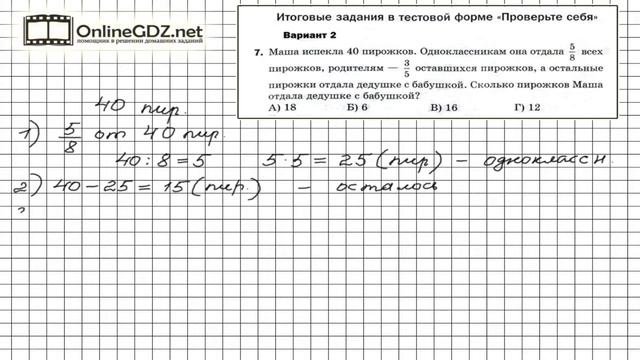 OnlineGDZ.net
помощник в решении домашних заданий
Итоговые задания в тестовой форме «Проверьте себя»
Вариант 2
7. Маша испекла 40 пирожков. Одноклассникам она отдала 5/8 всех
пирожков, родителям — 3/5 оставшихся пирожков, а остальные
пирожки отдала дедушке с бабушкой. Сколько пирожков Маша
отдала дедушке с бабушкой?
А) 18 Б) 6 В) 16 Г) 12
40 пир.
1) 5/8 от 40 пир.
40 : 8 = 5 5 · 5 = 25 (пир) – одноклассн.
2) 40 – 25 = 15 (пир.) – осталось